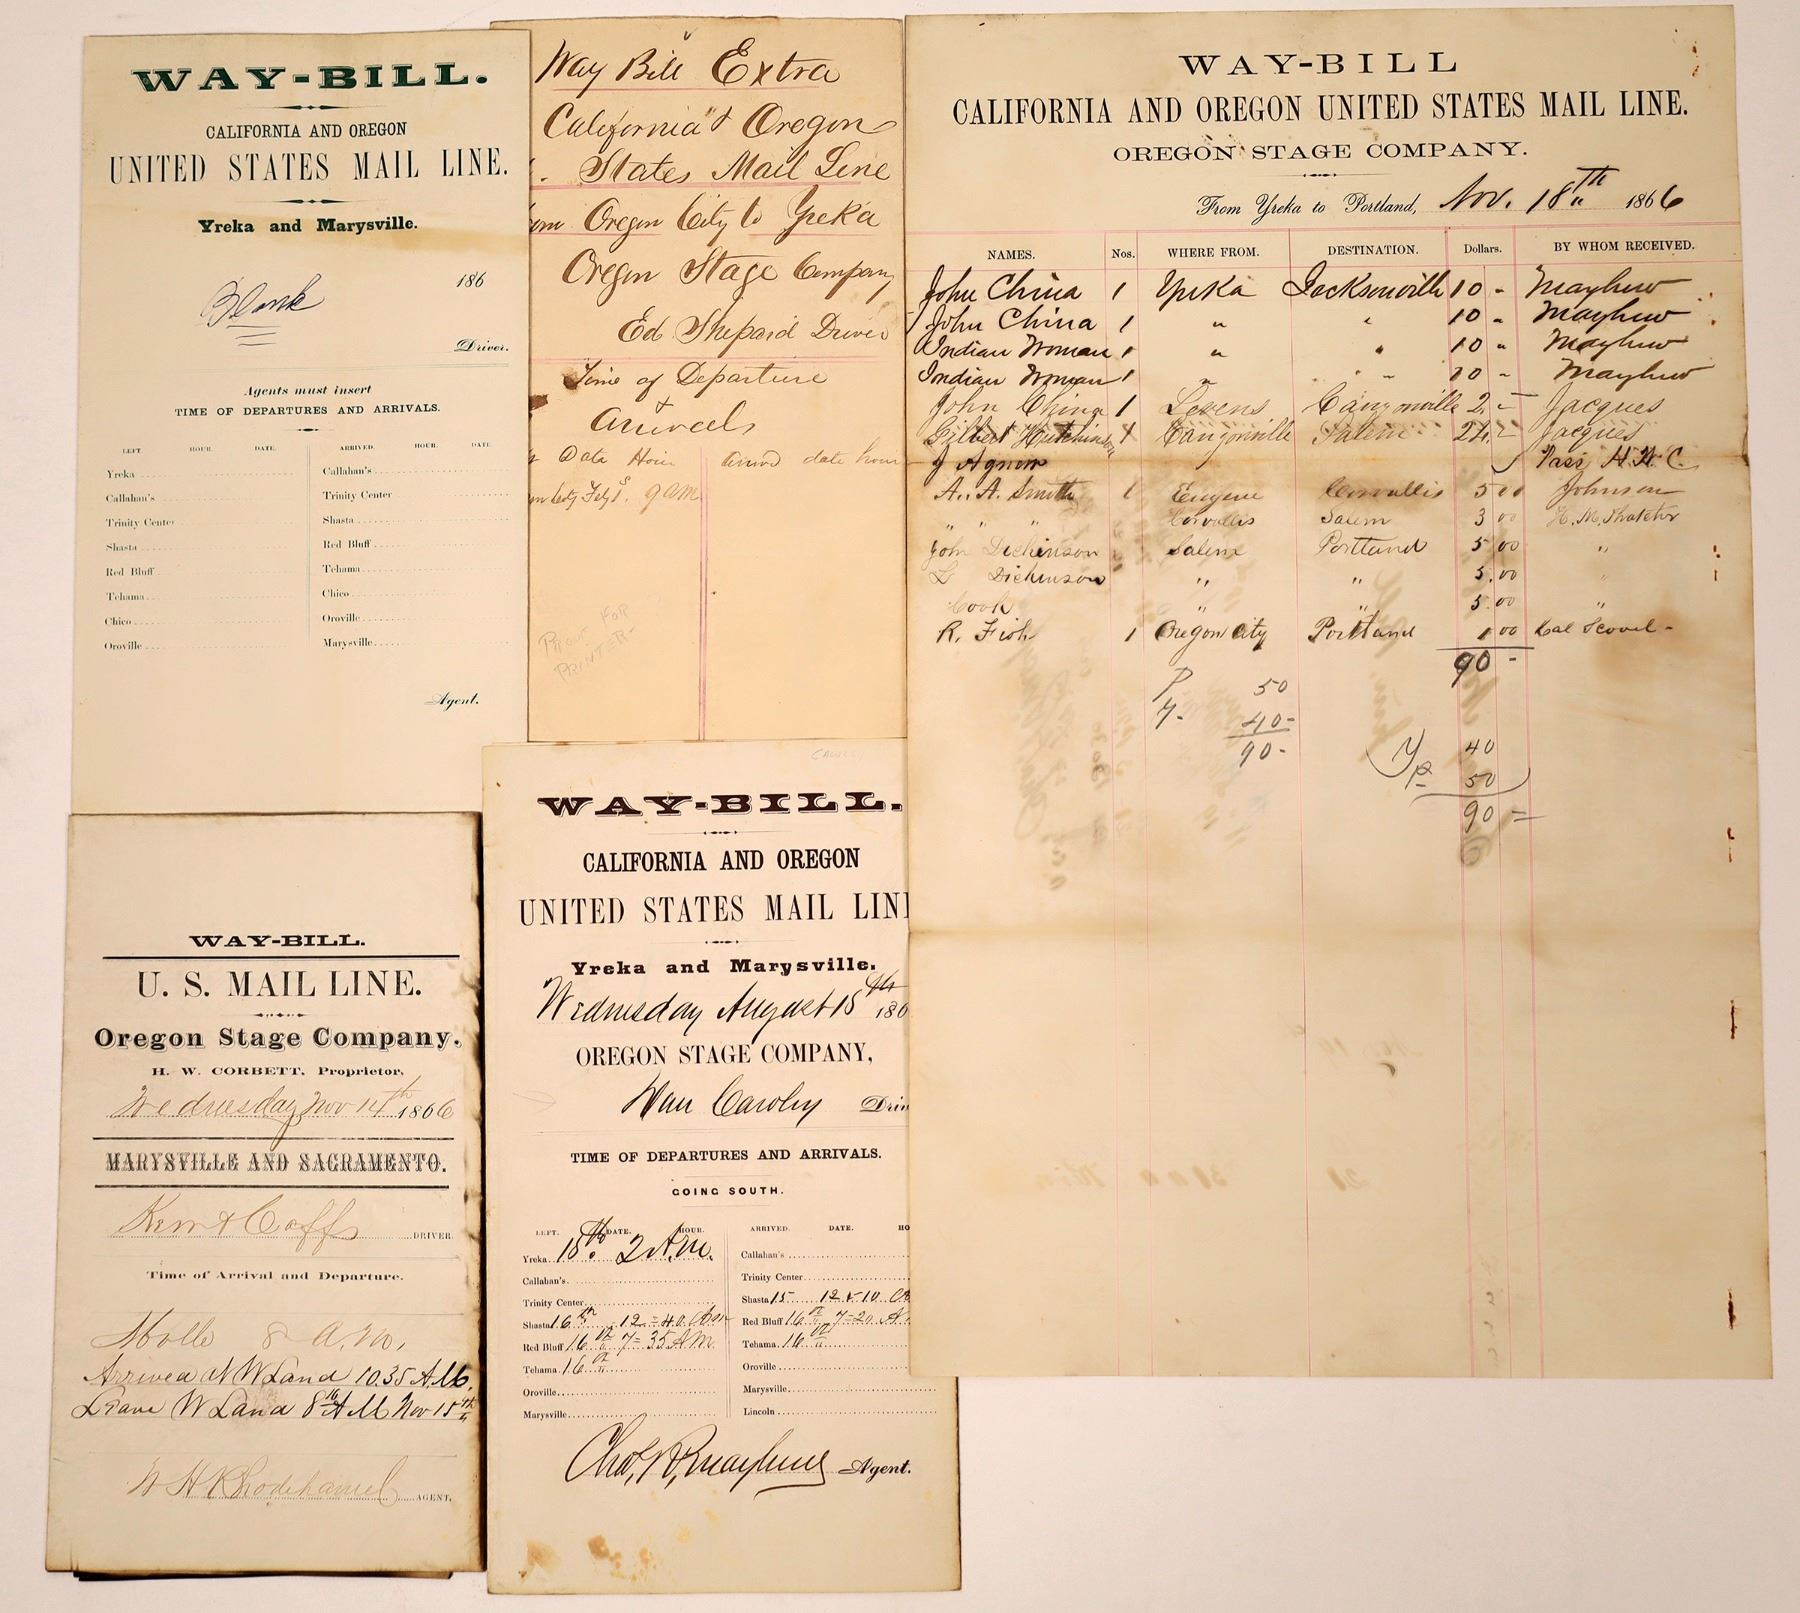 WAY-BILL.
CALIFORNIA AND OREGON
UNITED STATES MAIL LINE.
Yreka and Marysville.
186
Blank
Driver.
Agents must insert
TIME OF DEPARTURES AND ARRIVALS.
LEFT. HOUR. DATE. ARRIVED. HOUR. DATE.
Yreka Callahan's
Callahan's Trinity Center
Trinity Center Shasta
Shasta Red Bluff
Red Bluff Tehama
Tehama Chico
Chico Oroville
Oroville Marysville
Agent.
Way Bill Extra
California & Oregon
States Mail Line
Oregon City to Yreka
Oregon Stage Company
Ed Shepard Driver
Time of Departure
&
Date Hour date hour
9 am
PROOF FOR
PRINTER
WAY-BILL
CALIFORNIA AND OREGON UNITED STATES MAIL LINE.
OREGON STAGE COMPANY.
From Yreka to Portland, Nov. 18th 1866
NAMES. Nos. WHERE FROM. DESTINATION. Dollars. BY WHOM RECEIVED.
John China 1 Yreka Jacksonville 10 - Mayhew
John China 1 " " 10 - Mayhew
Indian Woman 1 " " 10 " Mayhew
Indian Woman 1 " " 10 - Mayhew
John China 1 Levens Canyonville 2 - Jacques
Gilbert Hutchinson 1 Canyonville Salem 24 - Jacques
J Agnew Pass H.W.C.
A. A. Smith 1 Eugene Corvallis 5 00 Johnson
" " " Corvallis Salem 3 00 H. M. Thatcher
John Dickinson Salem Portland 5 00 "
L Dickinson " " 5.00 "
Cook " 5.00 "
R. Fish 1 Oregon City Portland 1 00 Cal Scovel -
90 -
P 50
Y - 40 -
90 -
Y 40
P - 50
90 =
WAY-BILL.
U. S. MAIL LINE.
Oregon Stage Company.
H. W. CORBETT, Proprietor.
Wednesday Nov 14th 1866
MARYSVILLE AND SACRAMENTO.
DRIVER.
Time of Arrival and Departure.
8 A.M.
Arrived at W Land 10.35 A.M.
Leave W Land 8 A M Nov 15th
W H Rhodehamel AGENT.
WAY-BILL.
CALIFORNIA AND OREGON
UNITED STATES MAIL LINE
Yreka and Marysville.
Wednesday August 15th 186
OREGON STAGE COMPANY,
Dan Cawley Driv
TIME OF DEPARTURES AND ARRIVALS.
GOING SOUTH.
LEFT. DATE. HOUR. ARRIVED. DATE. HO
Yreka 15th 2 A.M. Callahan's
Callahan's Trinity Center
Trinity Center Shasta 15 12 & 10
Shasta 16th 12=40 Red Bluff 16th 7=20 A
Red Bluff 16th 7=35 A M Tehama 16th
Tehama 16th Oroville
Oroville Marysville
Marysville Lincoln
Chas. B. Mayhew Agent.